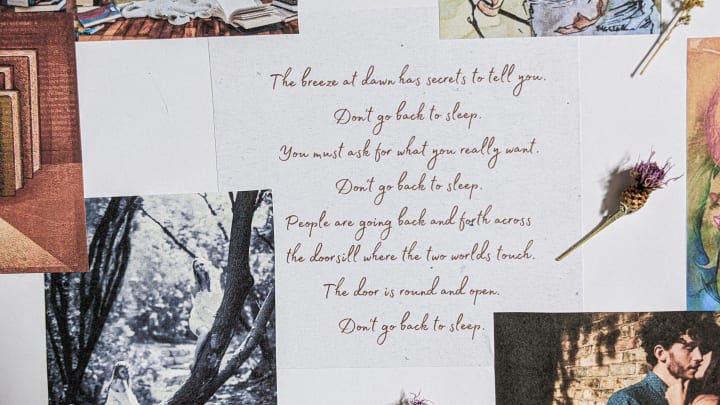 The breeze at dawn has secrets to tell you.
Don't go back to sleep.
You must ask for what you really want.
Don't go back to sleep.
People are going back and forth across
the doorsill where the two worlds touch.
The door is round and open.
Don't go back to sleep.